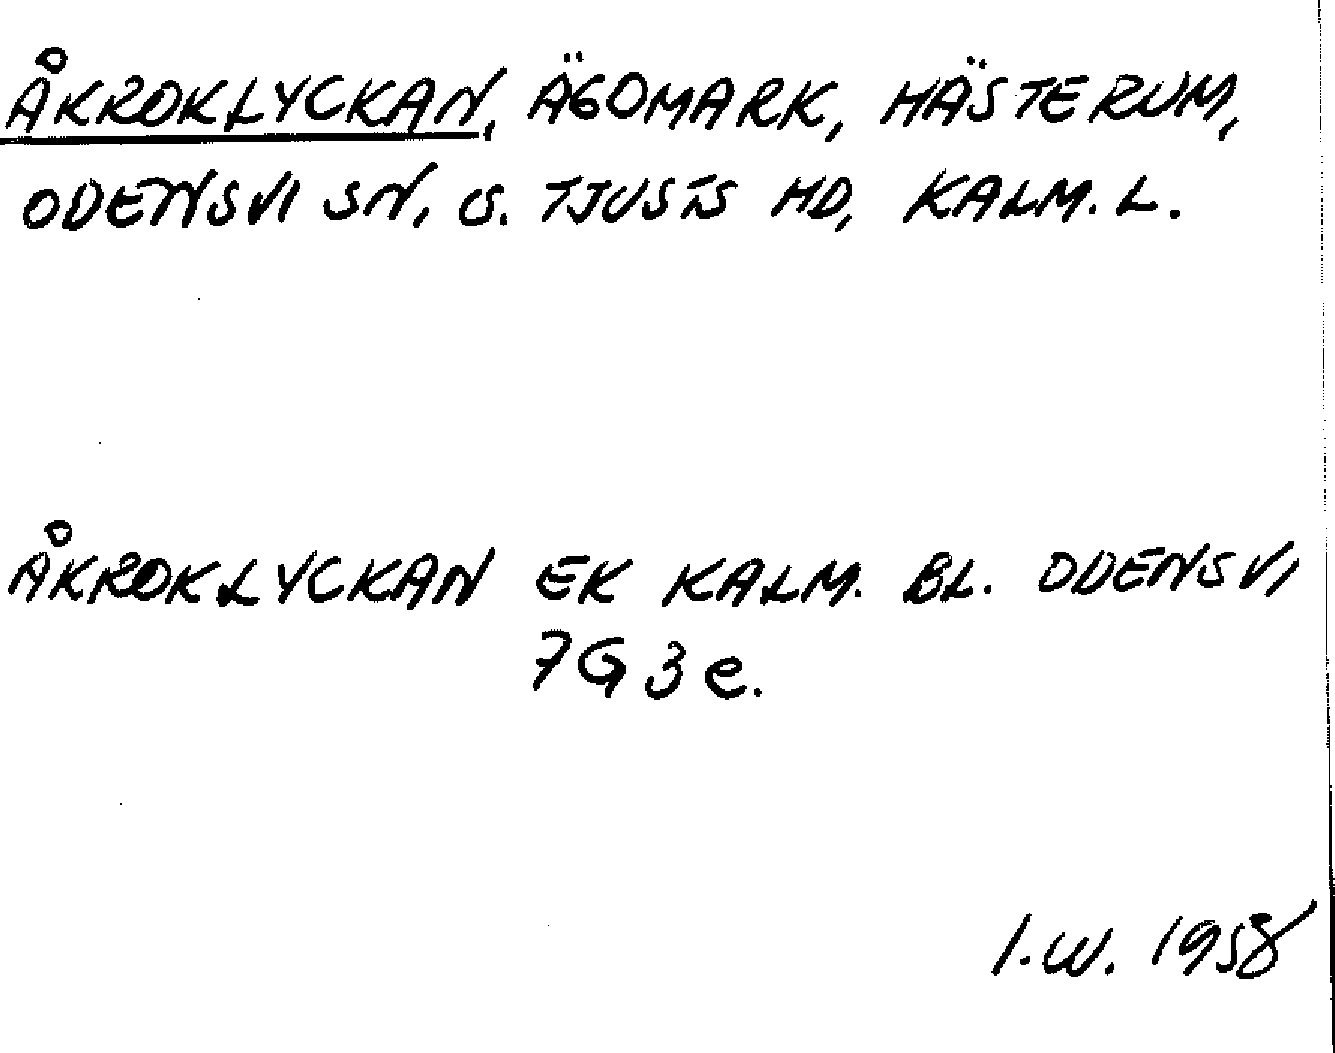 ÅKROKLYCKAN, ÄGOMARK, HÄSTERUM,
ODENSVI SN, S. TJUSTS HD, KALM. L.
ÅKROKLYCKAN EK KALM. BL. ODENSVI
7G 3e.
I.W. 1958